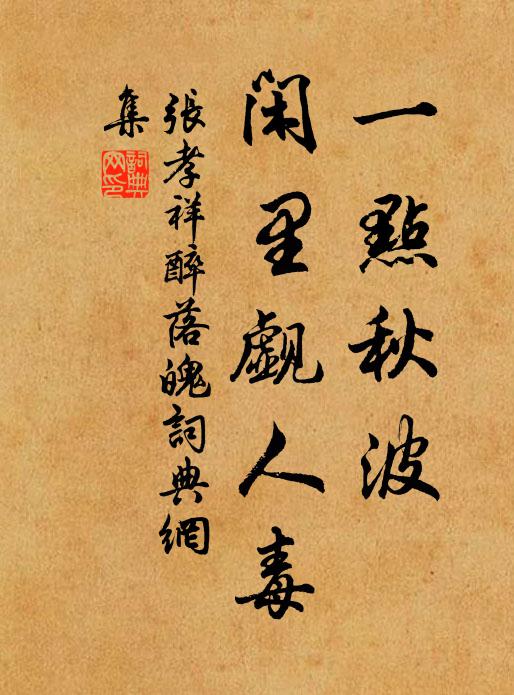 一點秋波
閑里覷人毒
張孝祥醉落魄詞典網
集
詞典
网印